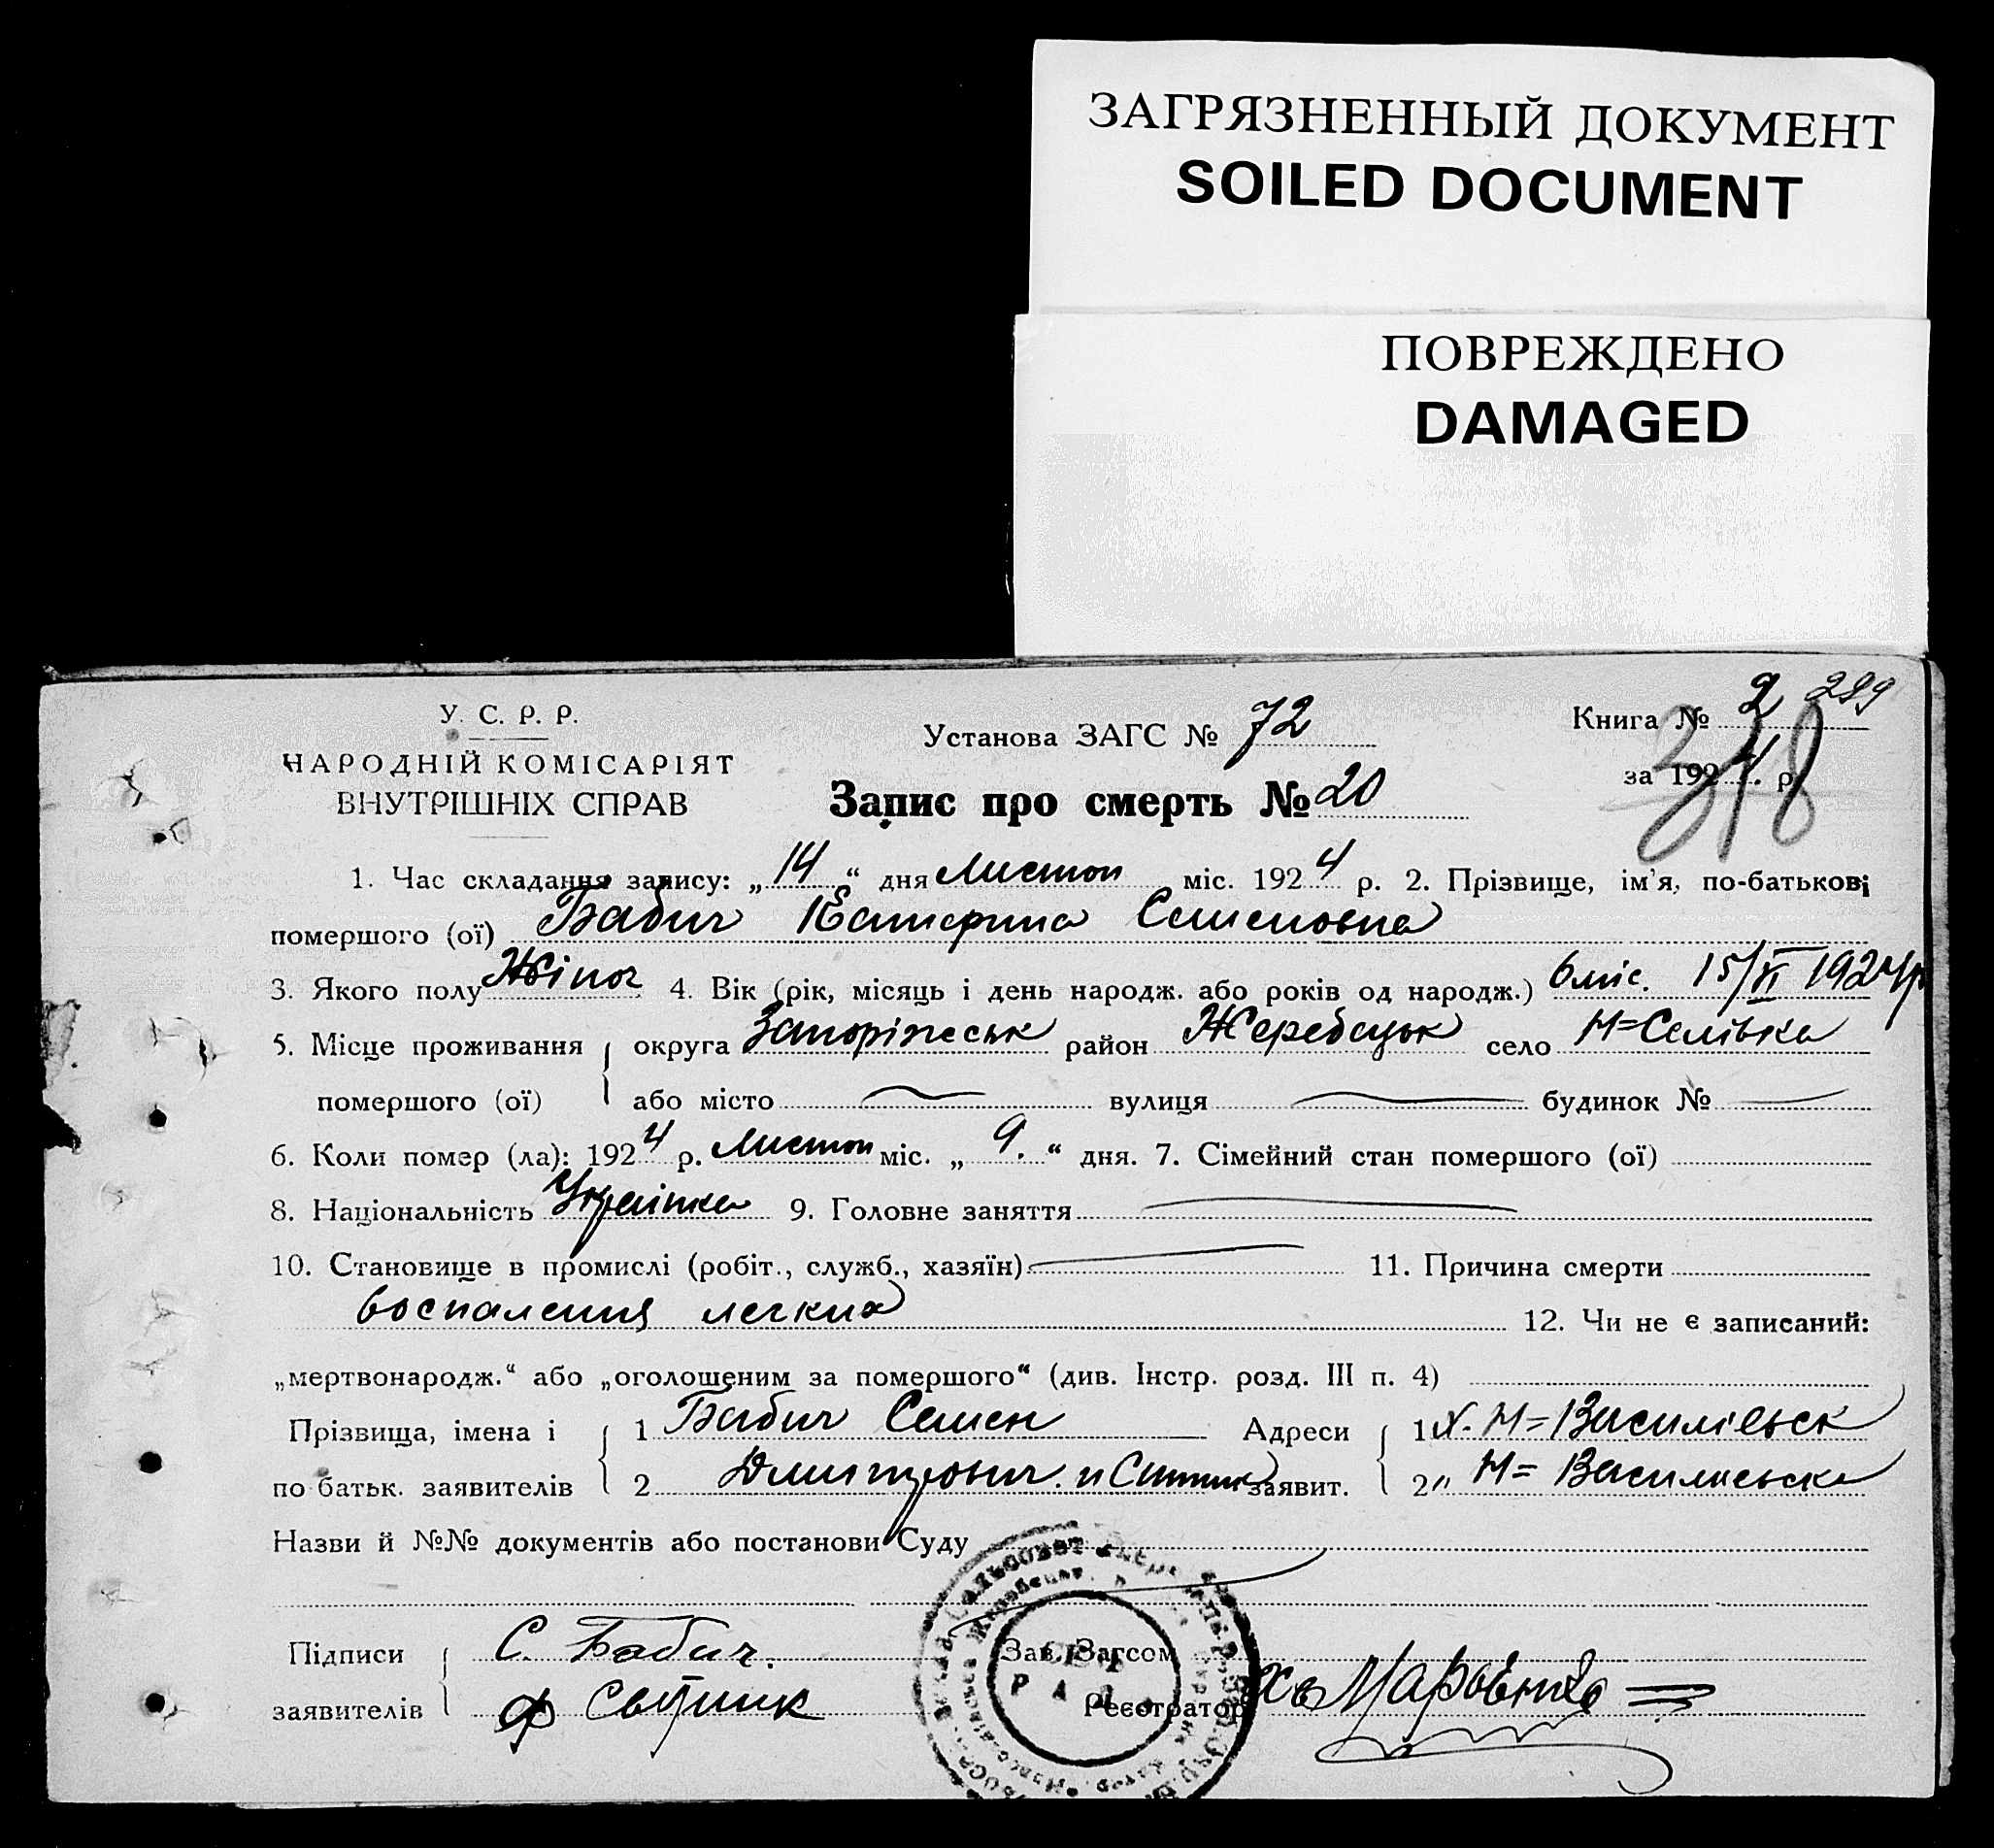 ЗАГРЯЗНЕННЫЙ ДОКУМЕНТ
SOILED DOCUMENT
ПОВРЕЖДЕНО
DAMAGED
У. С. Р. Р.
НАРОДНІЙ КОМІСАРІЯТ
ВНУТРІШНІХ СПРАВ
Установа ЗАГС № 72
Книга № 2 289
за 1924 р.
318
Запис про смерть № 20
1. Час складання запису: „14“ дня Листоп міс. 1924 р. 2. Прізвище, ім'я, по-батькові
помершого (ої) Бабич Катерина Семеновна
3. Якого полу Жіноч 4. Вік (рік, місяць і день народж. або років од народж.) 6 міс. 15/VI 1924 р
5. Місце проживання округа Запоріжськ район Жеребецьк село Н=Селівка
помершого (ої) або місто вулиця будинок №
6. Коли помер (ла): 1924 р. Листоп міс. „9.“ дня. 7. Сімейний стан помершого (ої)
8. Національність Українка 9. Головне заняття
10. Становище в промислі (робіт., служб., хазяїн) 11. Причина смерти
воспаления легких 12. Чи не є записаний:
„мертвонародж.“ або „оголошеним за помершого“ (див. Інстр. розд. III п. 4)
Прізвища, імена і 1 Бабич Семен Адреси 1 Х. Н=Василівськ
по батьк. заявителів 2 Дмитрович и заявит. 2 „ Н=
Назви й №№ документів або постанови Суду
Підписи С. Бабич. Зав. Загсом
заявителів Ф Свтник Реєстратор